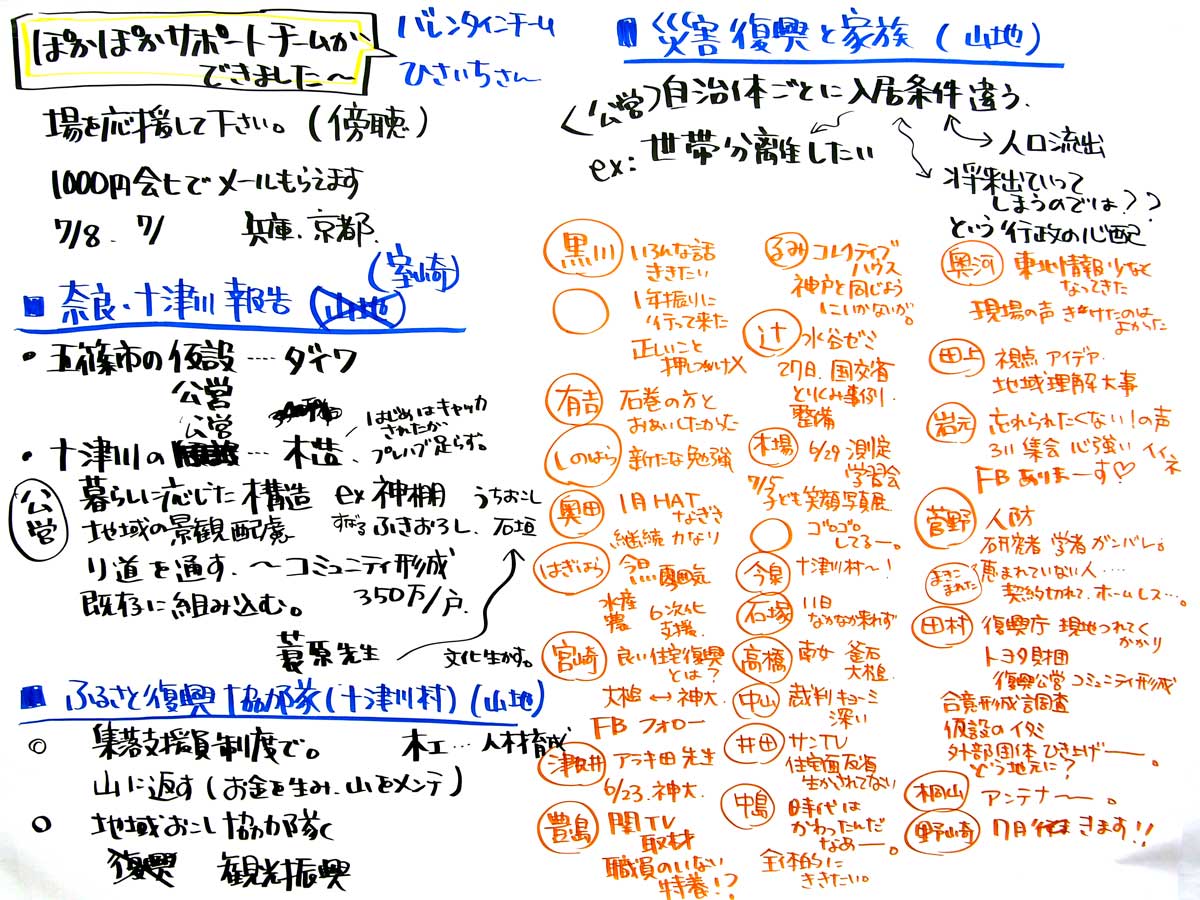 ぽかぽかサポートチームが
できました〜
バレンタインチーム
ひさいちさん
場を応援して下さい。(傍聴)
1000円会ヒでメールもらえます
7/8、7/ 兵庫、京都、
■ 奈良・十津川報告 (室崎)
• 五篠市の仮設 …… ダイワ
公営
公営
• 十津川の … 木造、
はじめはキャッカ
されたが
プレハブ足らず。
公営
暮らしに応じた構造 ex 神棚
うちおこし
地域の景観配慮 ふきおろし、石垣
り道を通す、〜コミュニティ形成
既存に組み込む。 350万/戸、
蓑原先生
文化生かす。
■ ふるさと復興協力隊(十津川村)(山地)
◎ 集落支援員制度で。 木工…人材育成
山に返す(お金を生み、山をメンテ)
○ 地域おこし協力隊
復興 観光振興
■ 災害復興と家族(山地)
〈公営〉自治体ごとに入居条件違う、
ex: 世帯分離したい
人口流出
将来出ていって
しまうのでは??
という行政の心配
黒川 いろんな話
ききたい
1年振りに
行って来た
正しいこと
押しつけ×
有吉 石巻の方と
おあいしたかった
しのはら 新たな勉強
奥田 1月HAT
なぎさ
継続力なり
はぎはら 今日
水産
農
6次化
支援、
宮崎 良い住宅復興
とは?
大槌↔神大
FBフォロー
津久井 アラキ田先生
6/23、神大
豊島 関TV
取材
職員のいない
特養!?
るみ コレクティブ
ハウス
神戸と同じよう
にいかないが。
辻 水谷ゼミ
27日、国交省
とりくみ事例、
整備
木場 6/29 測定
学習会
7/5
子ども笑顔写真展
ゴロゴロ
してるー。
今泉 十津川村〜!
石塚 11日
なかなか来れず
高橋 南女 釜石
大槌、
中山 裁判キョーミ
深い
井田 サンTV
住宅面反省
生かされてない
中島 時代は
かわったんだ
なぁー。
全体的に
ききたい。
奥河 東北情報少なく
なってきた
現場の声 きけたのは
よかった
田上 視点 アイデア、
地域理解大事
岩元 忘れられたくない!の声
3.11 集会 心強い イイネ
FBありまーす♡
菅野 人防
研究者 学者ガンバレ。
まきこ
まれた
恵まれていない人……
契約切れて、ホームレス…。
田村 復興庁 現地つれてく
かかり
トヨタ財団
復興公営コミュニティ形成
合意形成調査
仮設のイタミ
外部団体ひき上げ——。
どう地元に?
桐山 アンテナ〜。
野崎 7月 きます!!